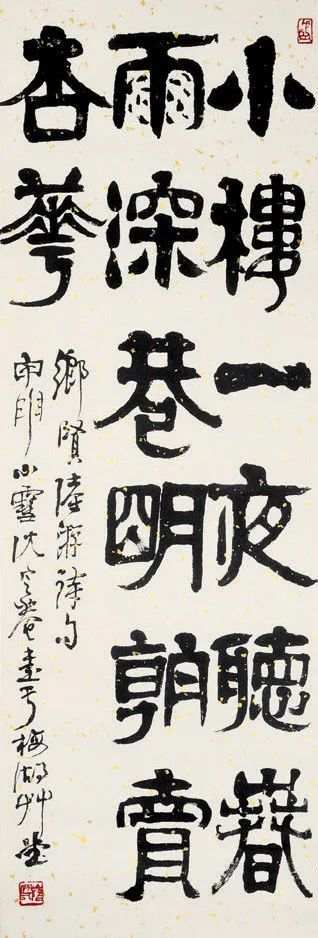 小樓一夜聽春
雨深巷明朝賣
杏華
鄉賢陸游詩句
小雪沈定庵書于梅湖艸堂